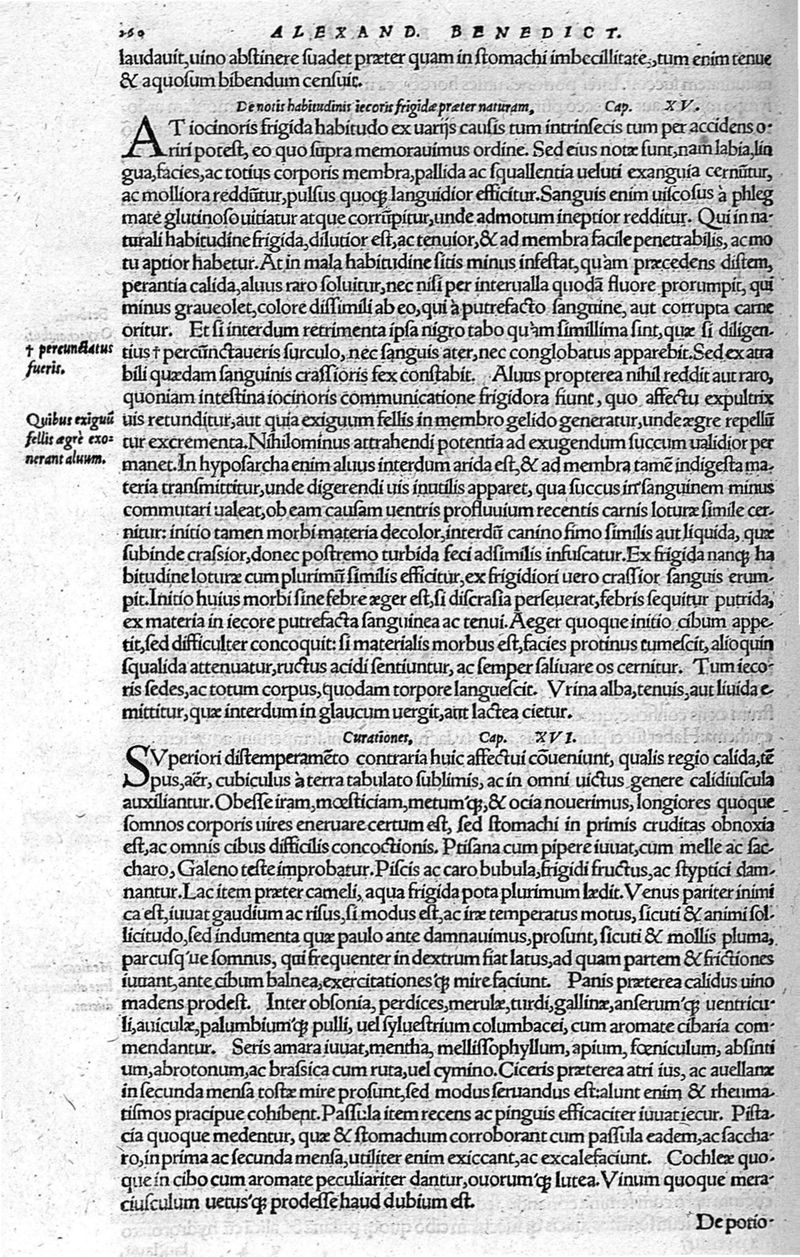 260 ALEXAND. BENEDICT.
laudauit, uino abstinere suadet præter quam in stomachi imbecillitate, tum enim tenue
& aquosum bibendum censuit.
De notis habitudinis iecoris frigidæ præter naturam, Cap. XV.
AT iocinoris frigida habitudo ex uarijs causis tum intrinsecis tum per accidens o-
riri potest, eo quo supra memorauimus ordine. Sed eius notæ sunt, nam labia, lin
gua, facies, ac totius corporis membra, pallida ac squallentia ueluti exanguia cernūtur,
ac molliora reddūtur, pulsus quoq; languidior efficitur. Sanguis enim uiscosus à phleg
mate glutinoso uitiatur atque corrūpitur, unde admotum ineptior redditur. Qui in na-
turali habitudine frigida, dilutior est, ac tenuior, & ad membra facile penetrabilis, ac mo
tu aptior habetur. At in mala habitudine sitis minus infestat, quàm præcedens distem,
perantia calida, aluus raro soluitur, nec nisi per interualla quodā fluore prorumpit, qui
minus graueolet, colore dissimili ab eo, qui à putrefacto sanguine, aut corrupta carne
oritur. Et si interdum retrimenta ipsa nigro tabo quàm simillima sint, quæ si diligen-
tius † percūnctaueris surculo, nec sanguis ater, nec conglobatus apparebit. Sed ex atra
† percunctatus
fueris.
bili quædam sanguinis crassioris fex constabit. Aluus propterea nihil reddit aut raro,
quoniam intestina iocinoris communicatione frigidora fiunt, quo affectu expultrix
uis retunditur, aut quia exiguum fellis in membro gelido generatur, unde ægre repellū
tur excrementa. Nihilominus attrahendi potentia ad exugendum succum ualidior per
manet. In hyposarcha enim aluus interdum arida est, & ad membra tamē indigesta ma-
Quibus exiguū
fellis ægrè exo-
nerant aluum.
teria transmittitur, unde digerendi uis inutilis apparet, qua succus in sanguinem minus
commutari ualeat, ob eam causam uentris profluuium recentis carnis loturæ simile cer-
nitur: initio tamen morbi materia decolor, interdū canino fimo similis aut liquida, quæ
subinde crassior, donec postremo turbida feci adsimilis infuscatur. Ex frigida nanq; ha
bitudine loturæ cum plurimū similis efficitur, ex frigidiori uero crassior sanguis erum-
pit. Initio huius morbi sine febre æger est, si discrasia perseuerat, febris sequitur putrida,
ex materia in iecore putrefacta sanguinea ac tenui. Aeger quoque initio cibum appe-
tit, sed difficulter concoquit: si materialis morbus est, facies protinus tumescit, alioquin
squalida attenuatur, ructus acidi sentiuntur, ac semper saliuare os cernitur. Tum ieco-
ris sedes, ac totum corpus, quodam torpore languescit. Vrina alba, tenuis, aut liuida e-
mittitur, quæ interdum in glaucum uergit, aut lactea cietur.
Curationes, Cap. XVI.
SVperiori distemperamēto contraria huic affectui cōueniunt, qualis regio calida, tē
pus, aër, cubiculus à terra tabulato sublimis, ac in omni uictus genere calidiuscula
auxiliantur. Obesse iram, mœsticiam, metum'q;, & ocia nouerimus, longiores quoque
somnos corporis uires eneruare certum est, sed stomachi in primis cruditas obnoxia
est, ac omnis cibus difficilis concoctionis. Ptisana cum pipere iuuat, cum melle ac sac-
charo, Galeno teste improbatur. Piscis ac caro bubula, frigidi fructus, ac styptici dam-
nantur. Lac item præter cameli, aqua frigida pota plurimum lædit. Venus pariter inimi
ca est, iuuat gaudium ac risus, si modus est, ac iræ temperatus motus, sicuti & animi sol-
licitudo, sed indumenta quæ paulo ante damnauimus, prosunt, sicuti & mollis pluma,
parcusq'ue somnus, qui frequenter in dextrum fiat latus, ad quam partem & frictiones
iuuant, ante cibum balnea, exercitationes'q; mire faciunt. Panis præterea calidus uino
madens prodest. Inter obsonia, perdices, merulæ, turdi, gallinæ, anserum'q; uentricu-
li, auiculæ, palumbium'q; pulli, uel syluestrium columbacei, cum aromate cibaria com-
mendantur. Seris amara iuuat, mentha, mellissophyllum, apium, fœniculum, absinti
um, abrotonum, ac brassica cum ruta, uel cymino. Ciceris præterea atri ius, ac auellanæ
in secunda mensa tostæ mire prosunt, sed modus seruandus est: alunt enim & rheuma-
tismos præcipue cohibent. Passula item recens ac pinguis efficaciter iuuat iecur. Pista-
cia quoque medentur, quæ & stomachum corroborant cum passula eadem, ac saccha-
ro, in prima ac secunda mensa, utiliter enim exiccant, ac excalefaciunt. Cochleæ quo-
que in cibo cum aromate peculiariter dantur, ouorum'q; lutea. Vinum quoque mera-
ciusculum uetus'q; prodesse haud dubium est.
De potio-